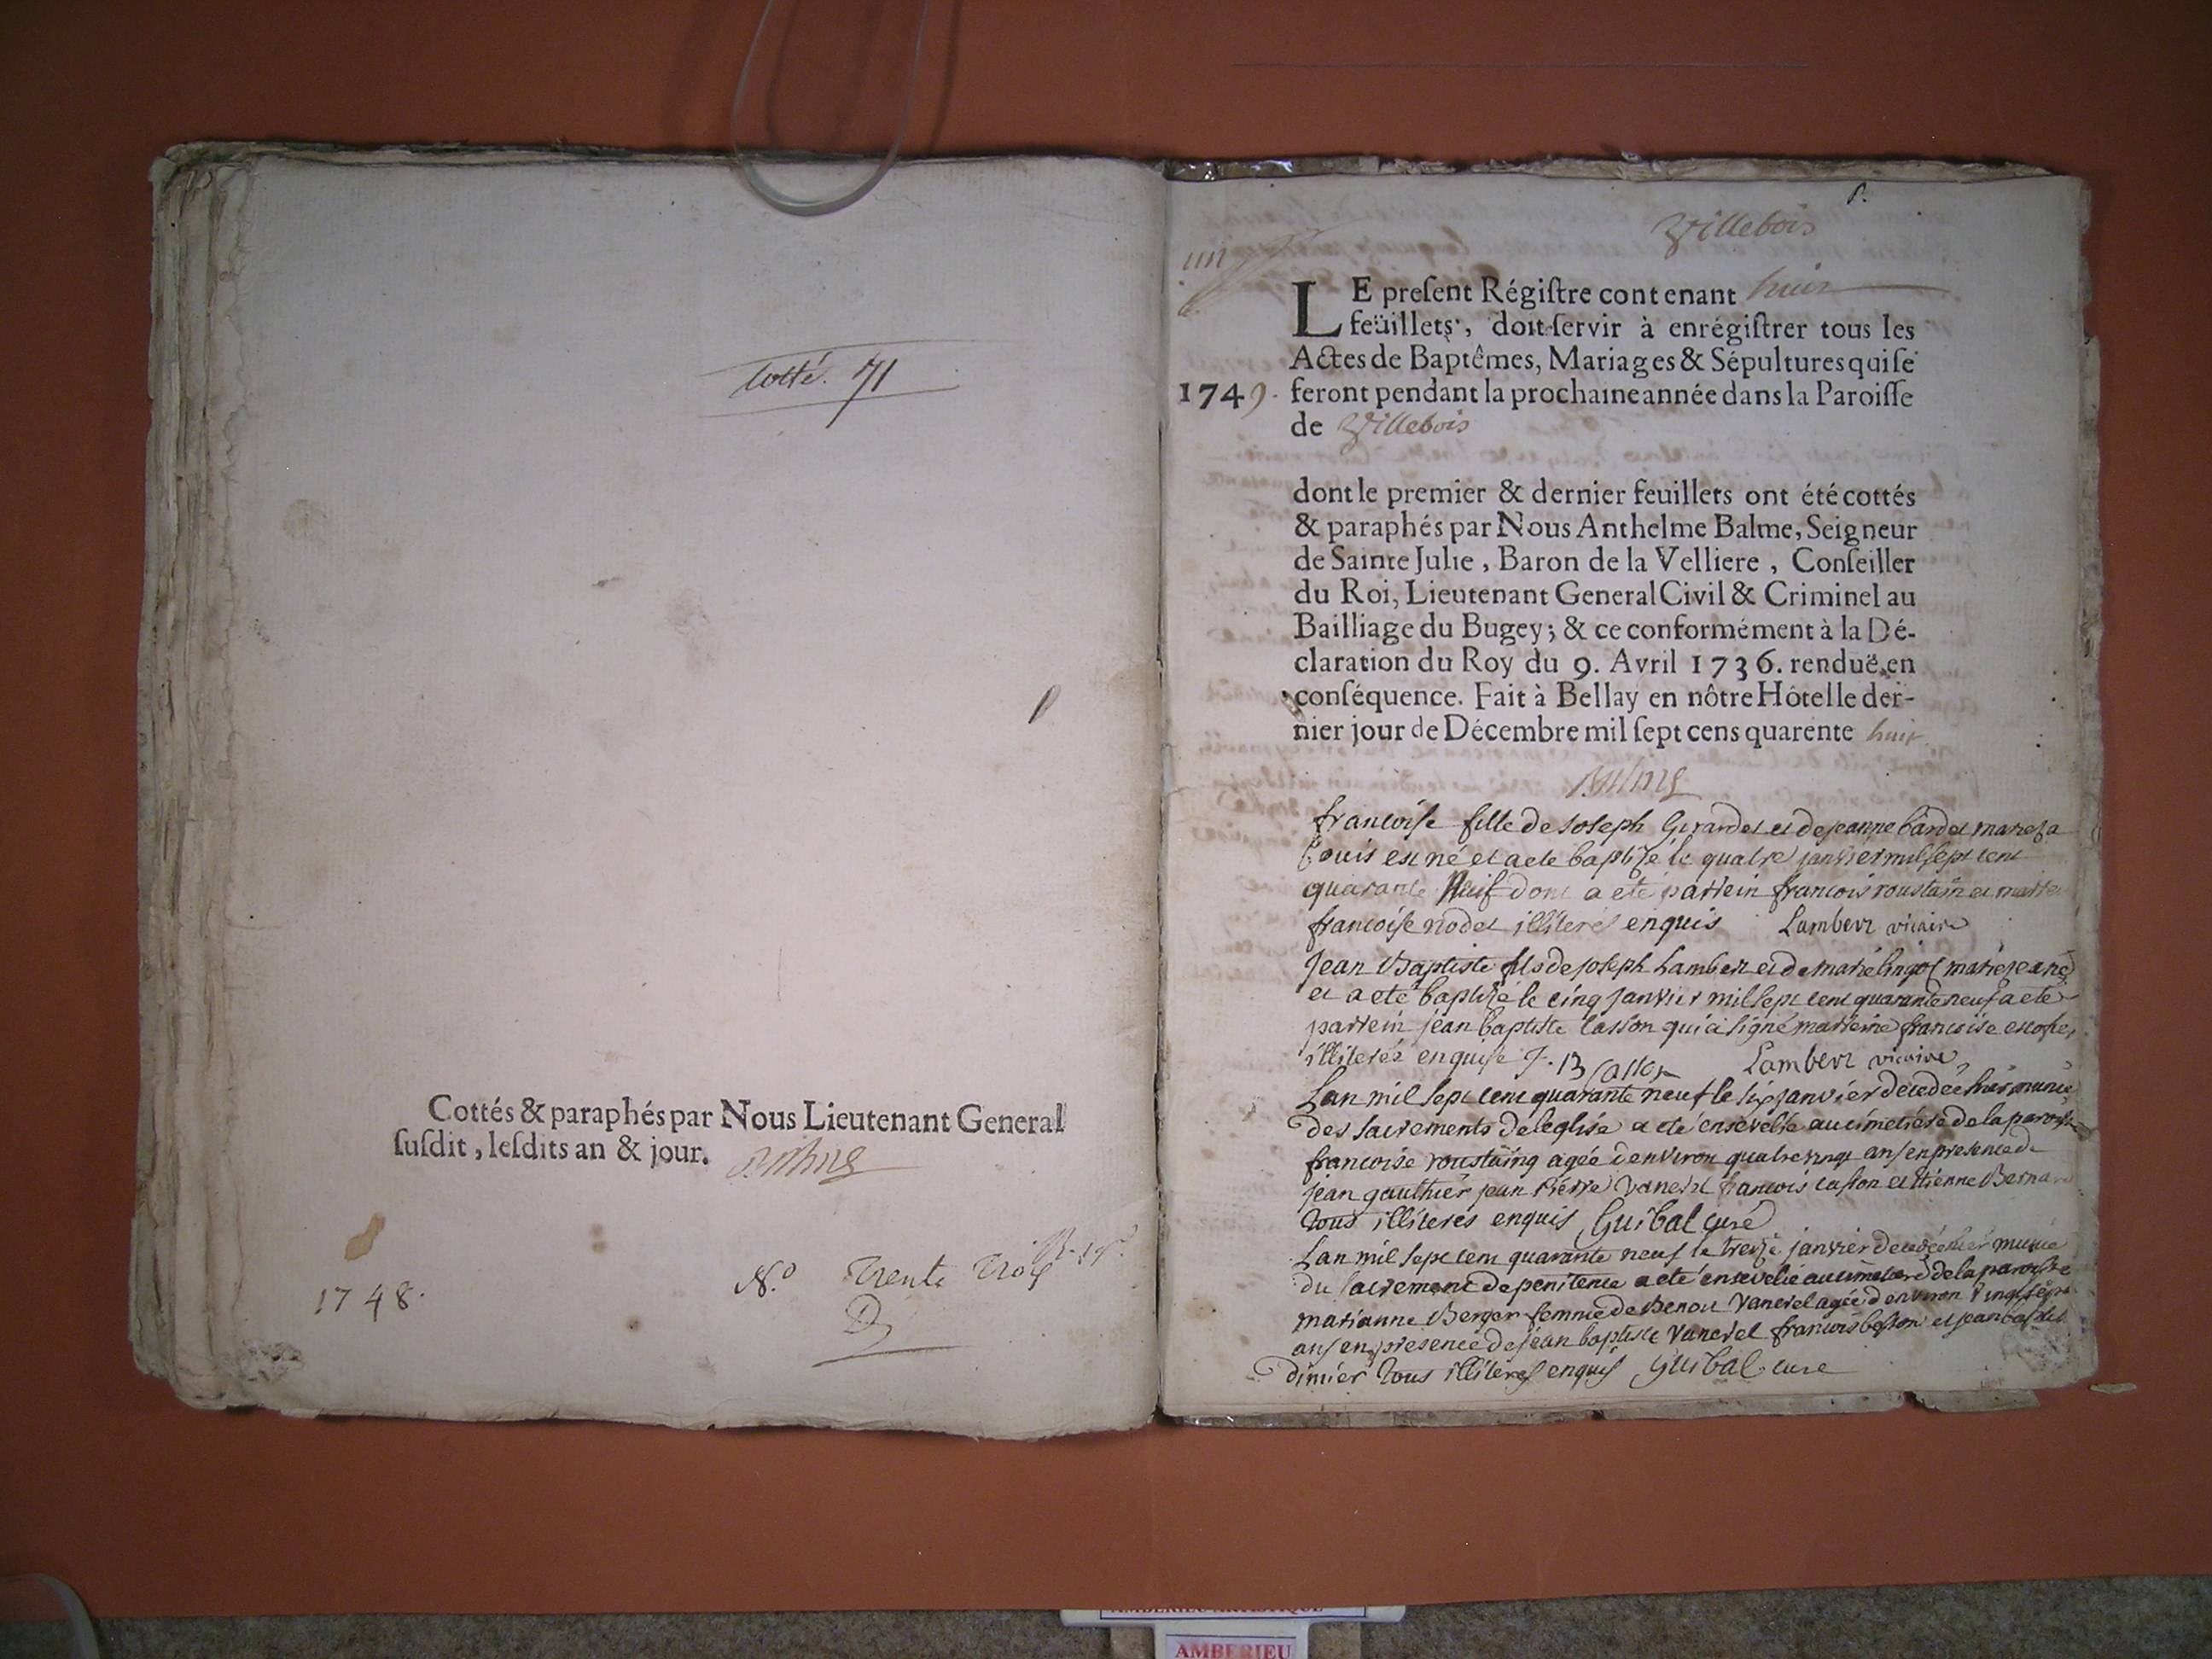 Cotté. 71
Cottés & paraphés par Nous Lieutenant General
ſuſdit, leſdits an & jour.
1748.
N.o trente trois
Villebois
un
LE preſent Régiſtre contenant huit
feüillets, doit ſervir à enrégiſtrer tous les
Actes de Baptêmes, Mariages & Sépultures qui ſe
1749. feront pendant la prochaine année dans la Paroiſſe
de Villebois
dont le premier & dernier feuillets ont été cottés
& paraphés par Nous Anthelme Balme, Seigneur
de Sainte Julie, Baron de la Velliere, Conſeiller
du Roi, Lieutenant General Civil & Criminel au
Bailliage du Bugey; & ce conformément à la Dé-
claration du Roy du 9. Avril 1736. renduë en
conſéquence. Fait à Bellay en nôtre Hôtel le der-
nier jour de Décembre mil ſept cens quarente huit
Balme
francoise fille de Joseph Girardet et de jeanne bardet
est né et a ete baptisé le quatre janvier mil sept cent
quarante Neuf dont a eté parrein francois roustain et
francoise nodet illiterés enquis Lambert vicaire
Jean Baptiste fils de joseph Lambert et de marie
et a eté baptisé le cinq janvier mil sept cent quarante neuf a eté
parrein jean baptiste Casson qui a signé marreine francoise
illiterée enquise J. B Casson Lambert vicaire
Lan mil sept cent quarante neuf le six janvier decedée hier munie
des sacrements de leglise a eté ensevelie au cimetiere de la paroisse
francoise roustaing agée denviron quatre vingt ans en presence de
jean gauthier jean pierre Vanerel francois casson et etienne Bernard
tous illiterés enquis Guibal curé
Lan mil sept cent quarante neuf le treize janvier decedée hier munie
du sacrement de penitence a eté ensevelie au cimetiere de la paroisse
marianne Berger femme de Benoit Vanerel agée denviron vingt sept
ans en presence de jean baptiste Vanerel francois besson et jean baptiste
dimier tous illiterés enquis Guibal cure
AMBERIEU ARTISTIQUE
AMBERIEU